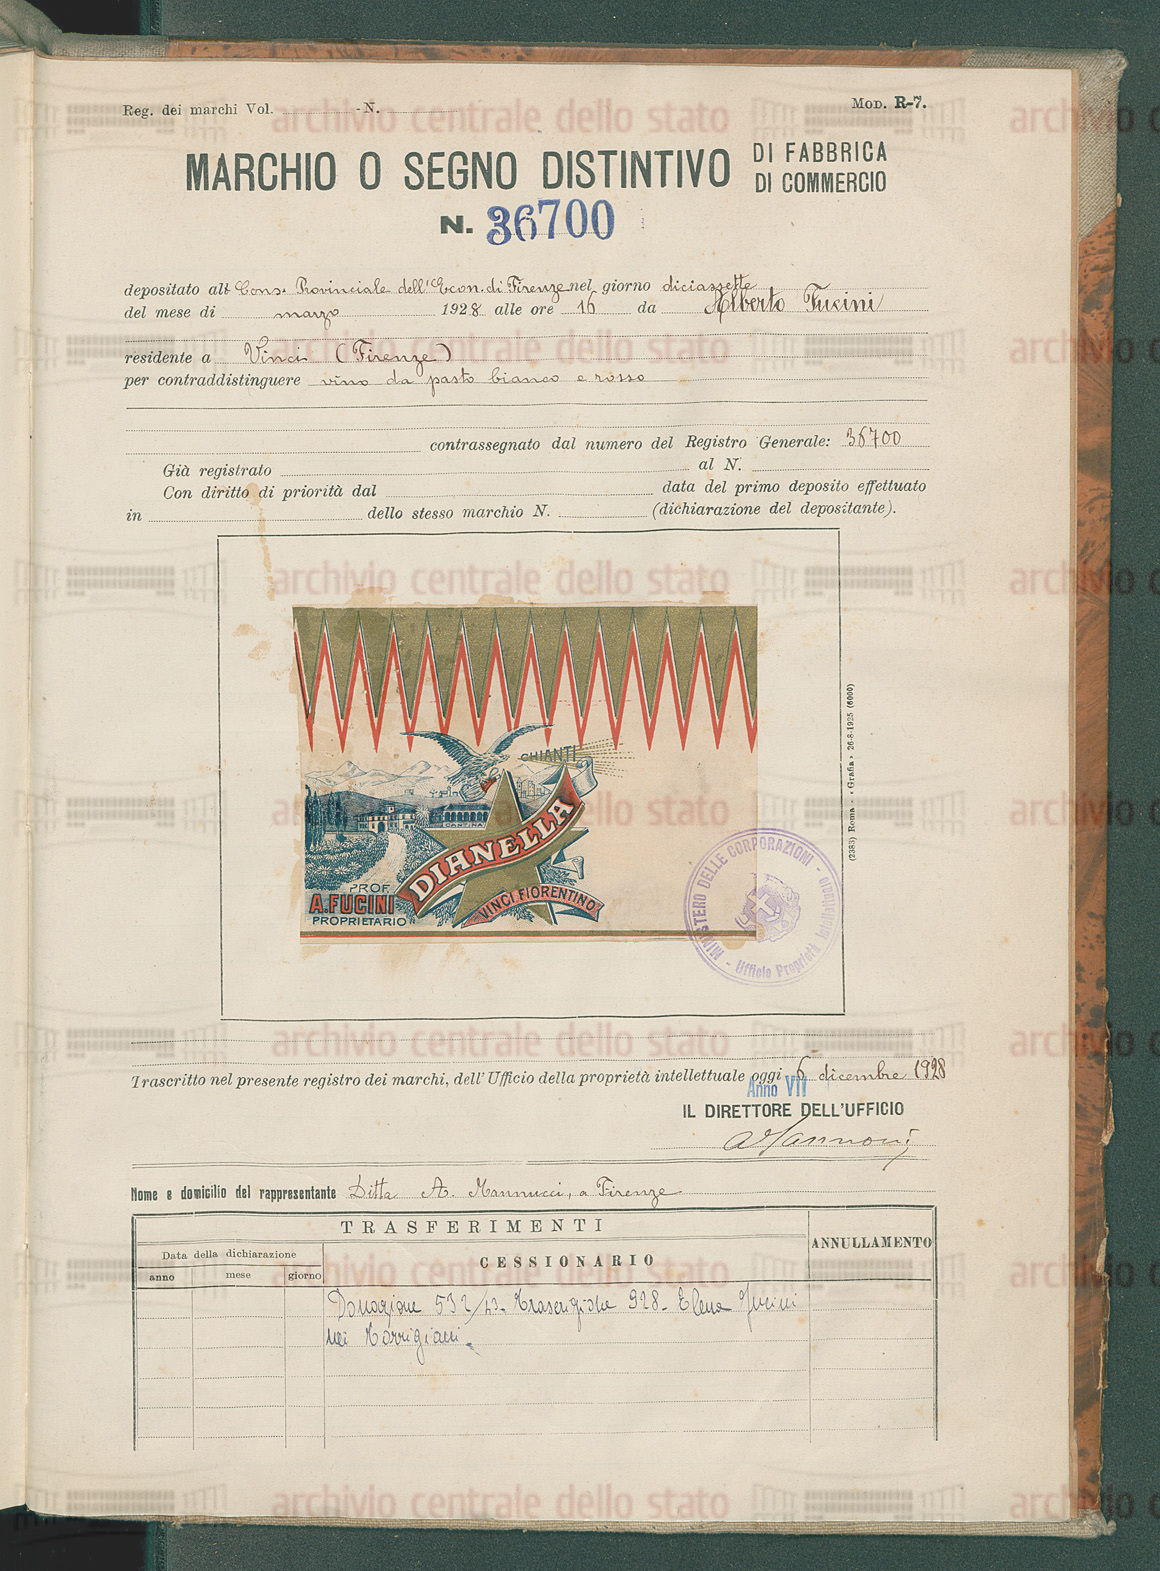 Reg. dei marchi Vol. - N.
MOD. R-7.
MARCHIO O SEGNO DISTINTIVO DI FABBRICA DI COMMERCIO
N. 36700
depositato alt Cons. Provinciale dell'Econ. di Firenze nel giorno diciassette
del mese di marzo 1928 alle ore 16 da Alberto Fucini
residente a Vinci (Firenze)
per contraddistinguere vino da pasto bianco e rosso
contrassegnato dal numero del Registro Generale: 36700
Già registrato al N.
Con diritto di priorità dal data del primo deposito effettuato
in dello stesso marchio N. (dichiarazione del depositante).
CHIANTI
CANTINA
DIANELLA
VINCI FIORENTINO
PROF.
A. FUCINI
PROPRIETARIO
MINISTERO DELLE CORPORAZIONI - Ufficio Proprietà Intellettuale
(2383) Roma - «Grafia» 26-8-1925 (6000)
Trascritto nel presente registro dei marchi, dell'Ufficio della proprietà intellettuale oggi 6 dicembre 1928
Anno VII
IL DIRETTORE DELL'UFFICIO
Nome e domicilio del rappresentante Ditta A. Mannucci, a Firenze
TRASFERIMENTI
ANNULLAMENTO
Data della dichiarazione
CESSIONARIO
anno mese giorno
Donazione 532 Elena Fucini
nei Torrigiani.
archivio centrale dello stato
archivio centrale dello stato
archivio centrale dello stato
archivio centrale dello stato
archivio centrale dello stato
archivio centrale dello stato
archivio centrale dello stato